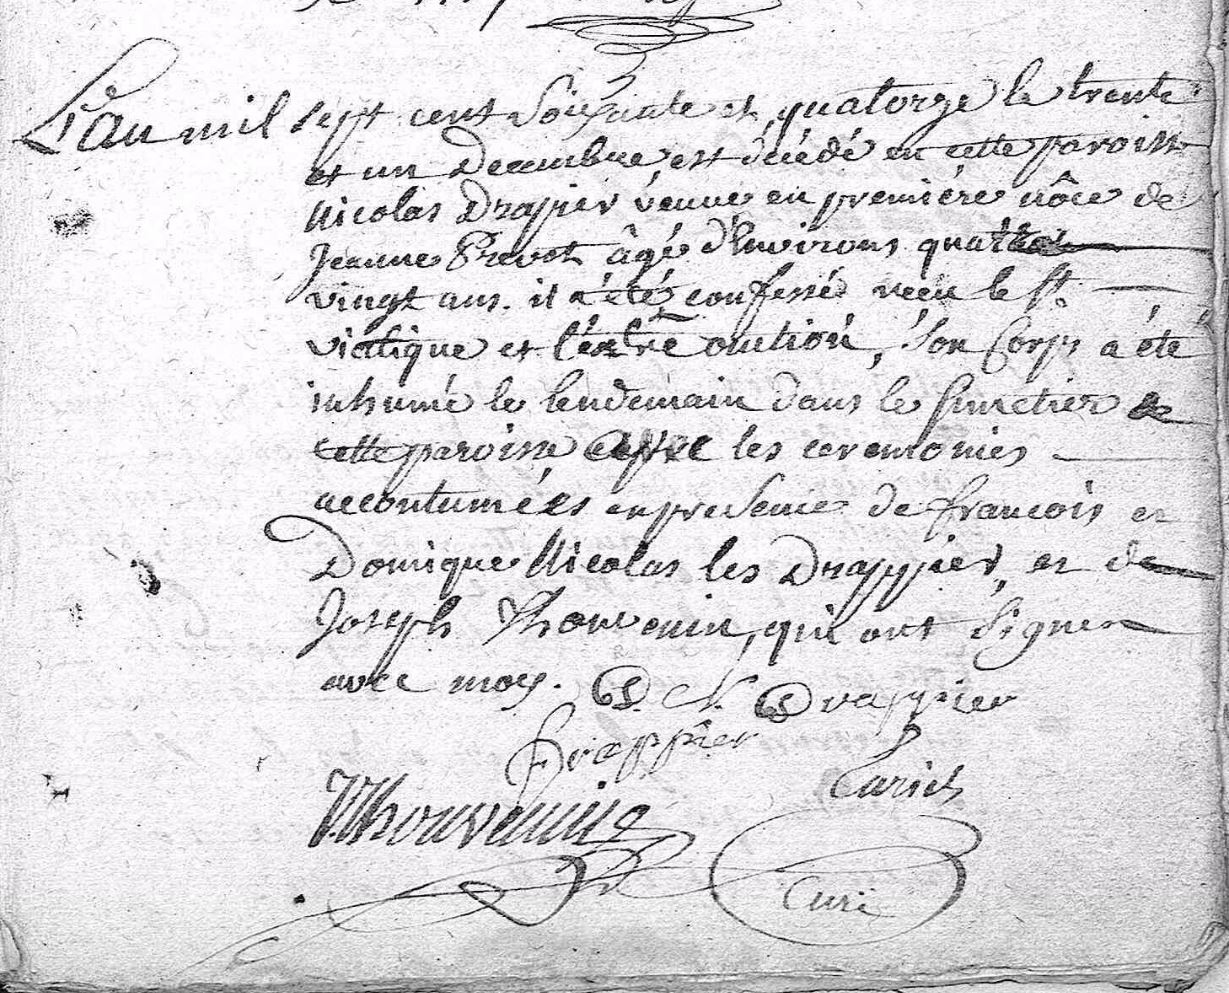 L'an mil sept cent soixante et quatorze le trente
et un Decembre est décédé en cette paroisse
Nicolas Drappier veuve en première nôce de
Jeanne Prevot âgé d'Environs quatre
vingt ans. il a été confessé recu le St.
viatique et l'éxtrê onction, son Corps a été
inhumé le lendemain dans le simetier de
cette paroisse avec les ceremonies
accoutumées en presence de françois et
Dominique Nicolas les Drappier, et de
Joseph Thouvenin, qui ont signer
avec moy. D. N. Drappier
Drappier
Curich
Thouvenin
Curé